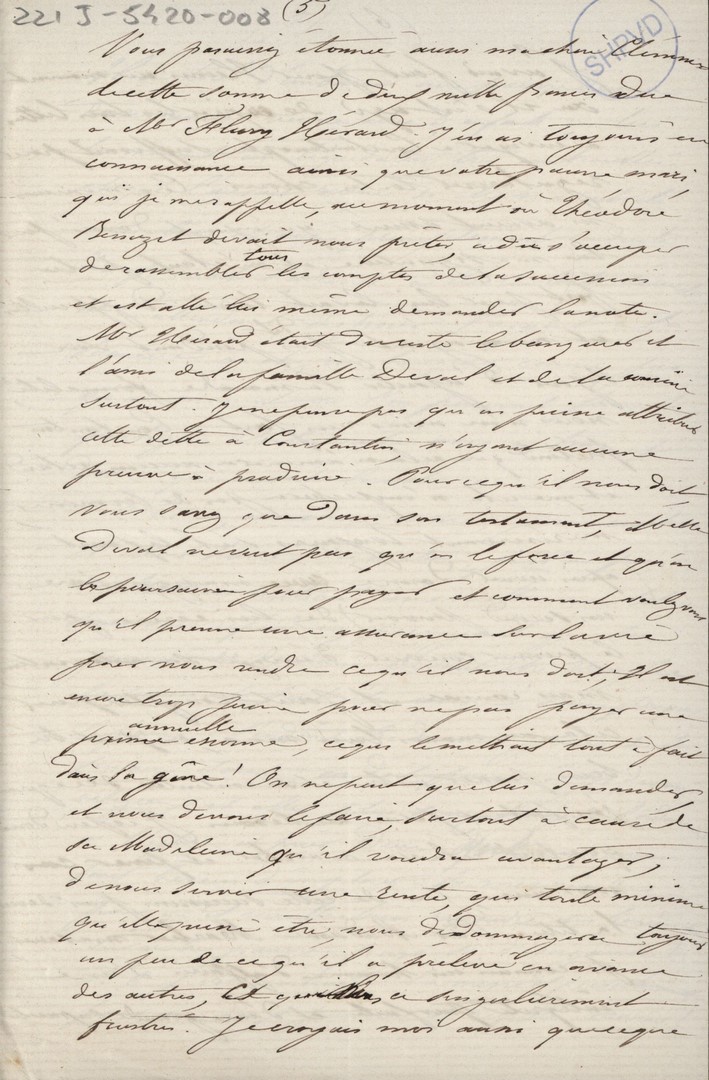 221 J-5420-008 (5)
SHPVD
Vous paraissiez étonnée aussi ma chère Clémence
de cette somme de dix mille francs due
à Mr Fleury Hérard. J'en ai toujours eu
connaissance ainsi que votre pauvre mari,
qui je me rappelle, au moment où Théodore
devait nous prêter, a dû s'occuper
de rassembler tous les comptes de la succession
et est allé lui même demander la note.
Mr Hérard était du reste le banquier et
l'ami de la famille Deval et de la cousine
surtout. Je ne pense pas qu'on puisse attribuer
cette dette à Constantin, n'ayant aucune
preuve à produire. Pour ce qu'il nous doit,
vous savez que dans son testament, Melle
Deval ne veut pas qu'on le force et qu'on
le poursuive pour payer et comment voulez vous
qu'il prenne une assurance sur la vie
pour nous rendre ce qu'il nous doit, Il est
encore trop jeune pour ne pas payer une
prime annuelle énorme, ce qui le mettrait tout à fait
dans la gêne! On ne peut que lui demander,
et nous devons le faire, surtout à cause de
sa Madeleine qu'il voudra avantager,
de nous servir une rente, qui toute minime
qu'elle puisse être, nous dédommagera toujours
un peu de ce qu'il a prélevé en avance
des autres, et a singulièrement
frustré. Je croyais moi aussi que ce que